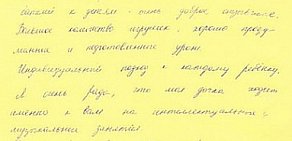 детьми - очень доброе отношение.
Большое количество игрушек, хорошо проду-
манный и подготовленный урок.
Индивидуальный подход к каждому ребёнку.
Я очень рада, что моя дочка ходит
именно к вам на интеллектуальные и
музыкальные занятия.